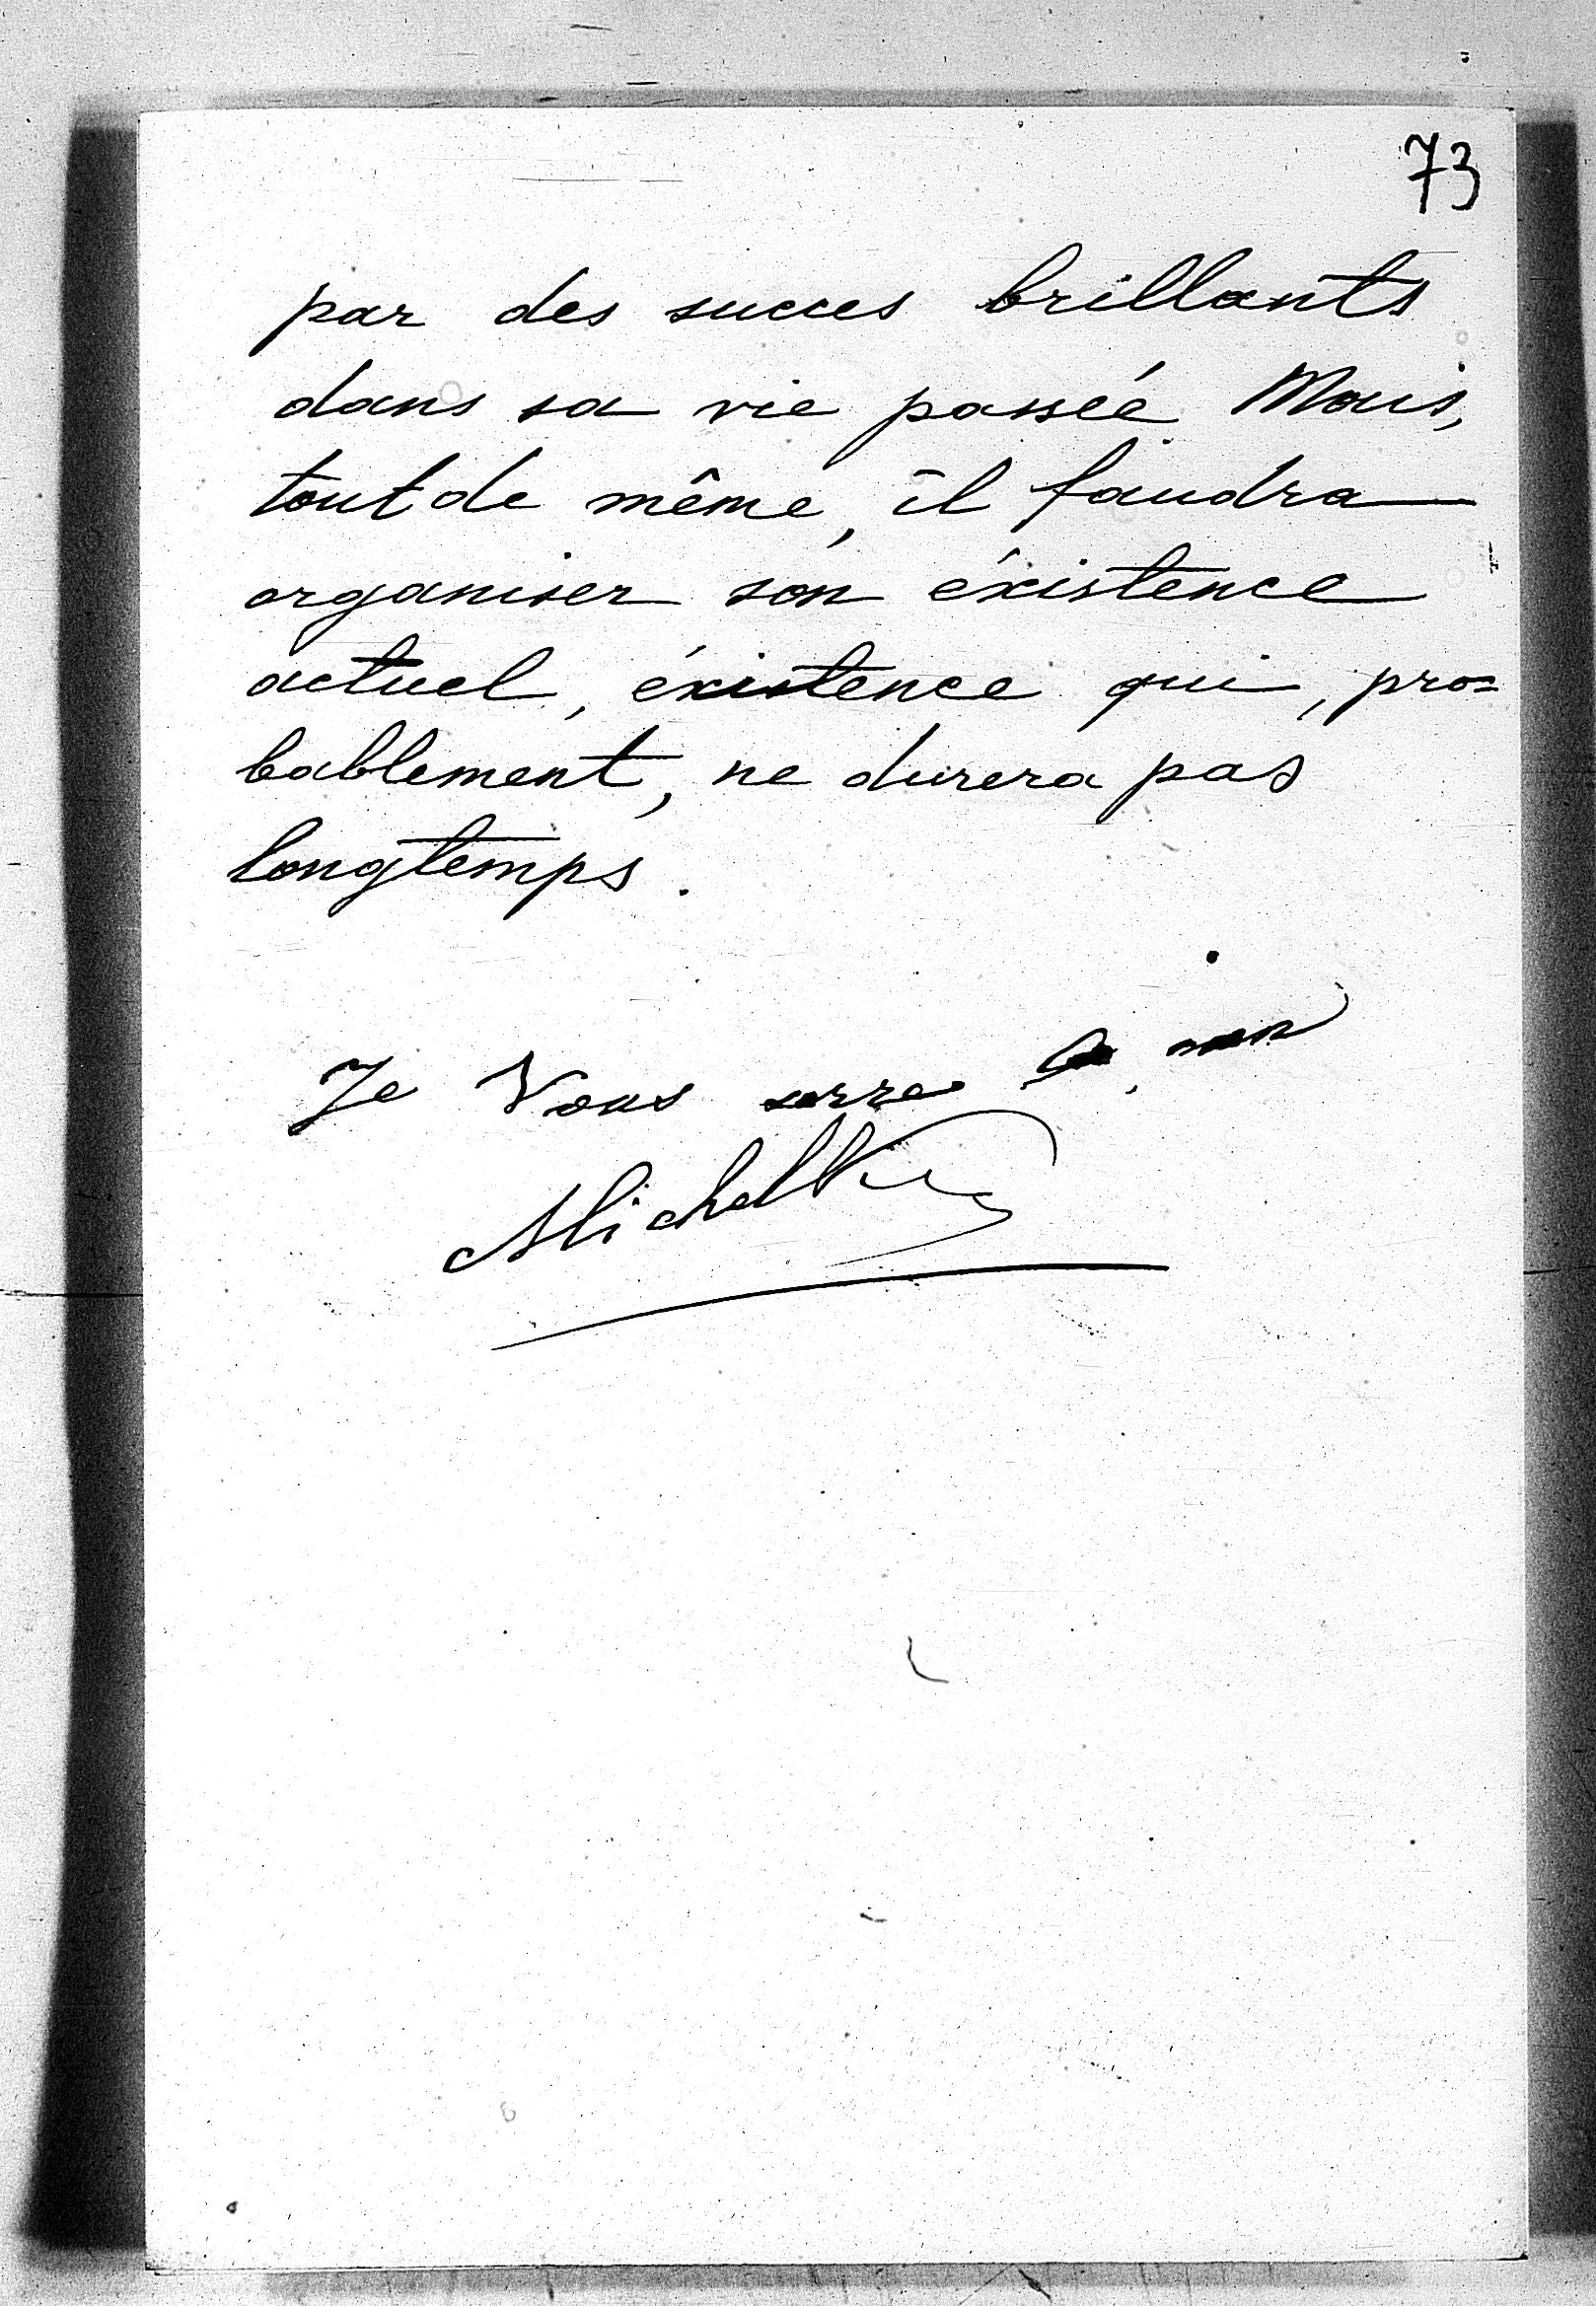 73
par des succes brillants
dans sa vie passée. Mais,
tout de même, il faudra
organiser son éxistence
actuel, éxistence qui, pro=
bablement, ne durera pas
longtemps.
Je Vous serre la main
Michel